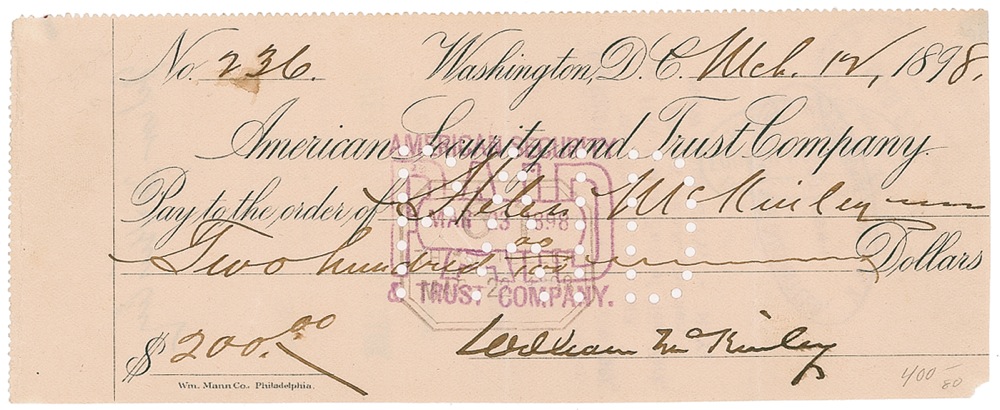 No. 236. Washington, D.C. Mch. 12, 1898.
American Security and Trust Company.
Pay to the order of Helen McKinley
Two hundred 00/100 Dollars
$200.00 William McKinley
Wm. Mann Co., Philadelphia.
AMERICAN SECURITY
PAID
MAR 23 1898
& TRUST COMPANY.
400-
80